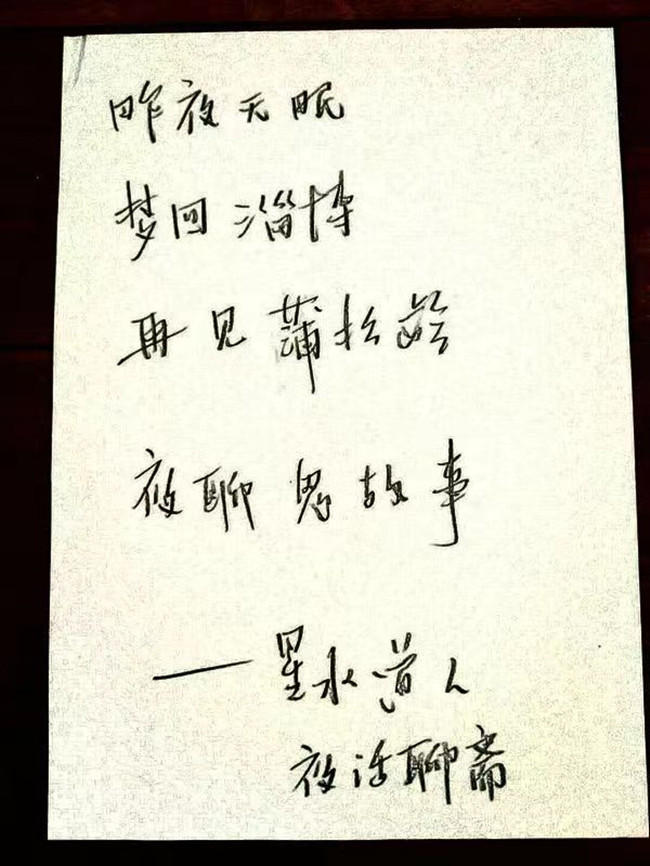 昨夜无眠
梦回淄博
再见蒲松龄
夜聊鬼故事
——星水道人
夜话聊斋